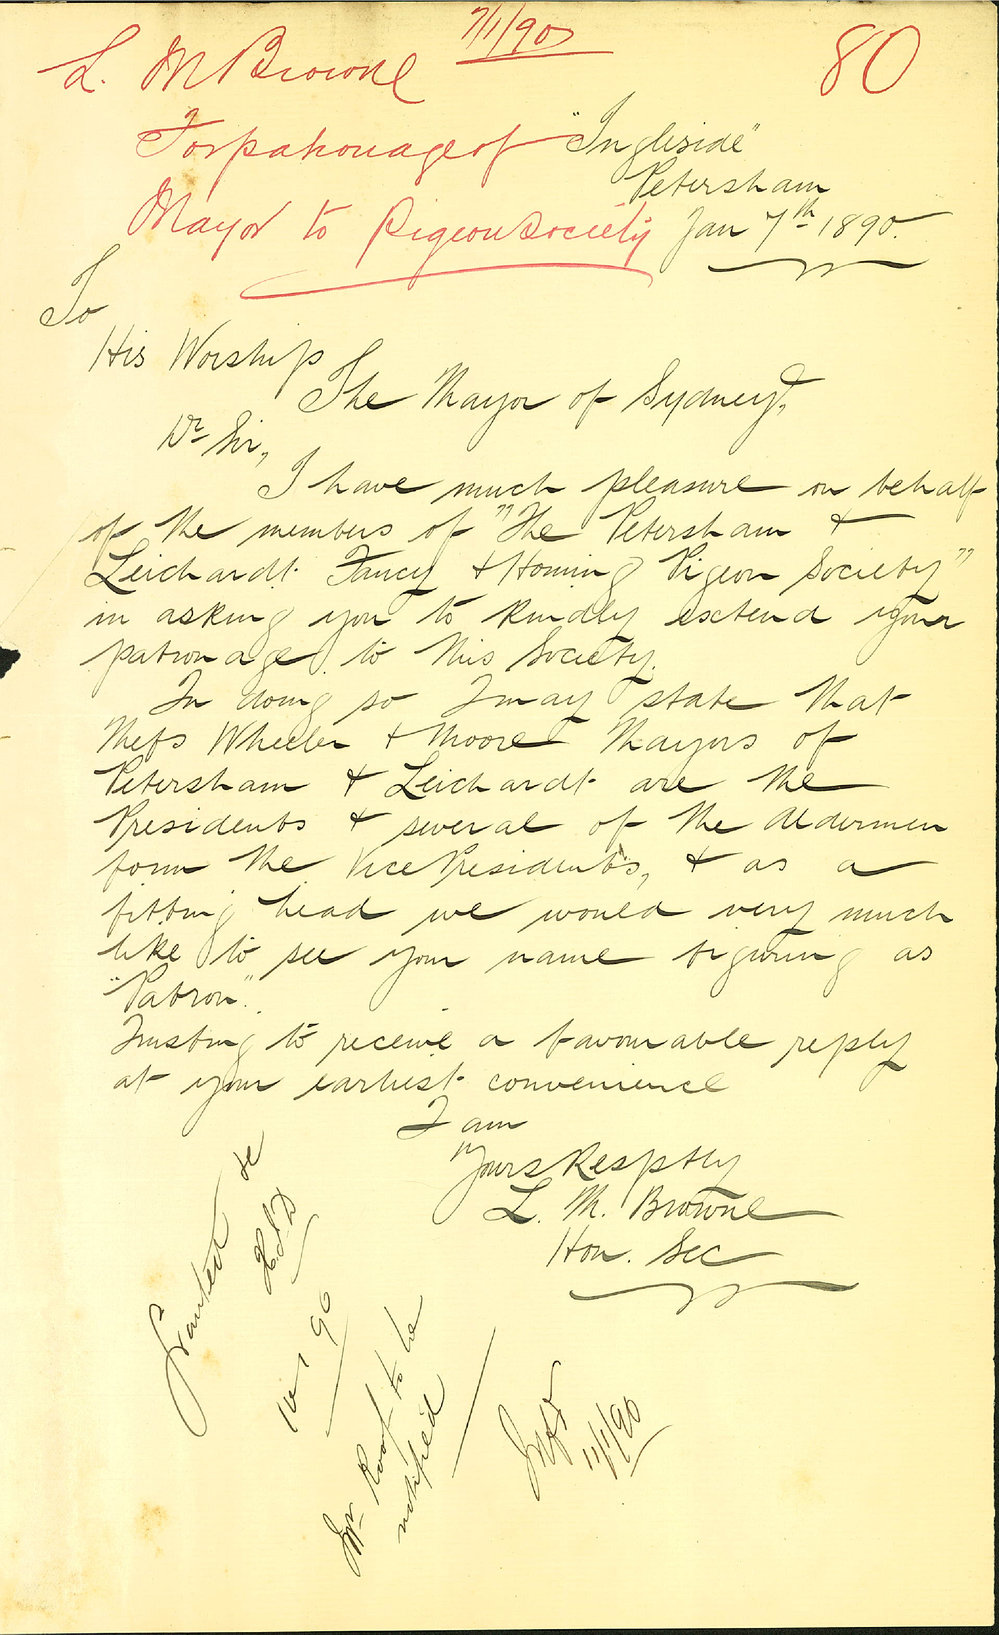 7/1/90
80
L. M Browne
For patronage of
Mayor to Pigeon Society
"Ingleside"
Petersham
Jan 7th 1890.
To
His Worship
The Mayor of Sydney,
Dr Sir,
I have much pleasure on behalf
of the members of "The Petersham &
Leichardt Fancy & Homing Pigeon Society"
in asking you to kindly extend your
patronage to this Society.
In doing so I may state that
Messrs Wheeler & Moore Mayors of
Petersham & Leichardt are the
Presidents & several of the Aldermen
form the Vice Presidents, & as a
fitting head we would very much
like to see your name figuring as
"Patron".
Trusting to receive a favourable reply
at your earliest convenience
I am
Yours Resptly
L. M. Browne
Hon. Sec
Granted
10/1/90
Mr Roof to be
notified
11/1/90